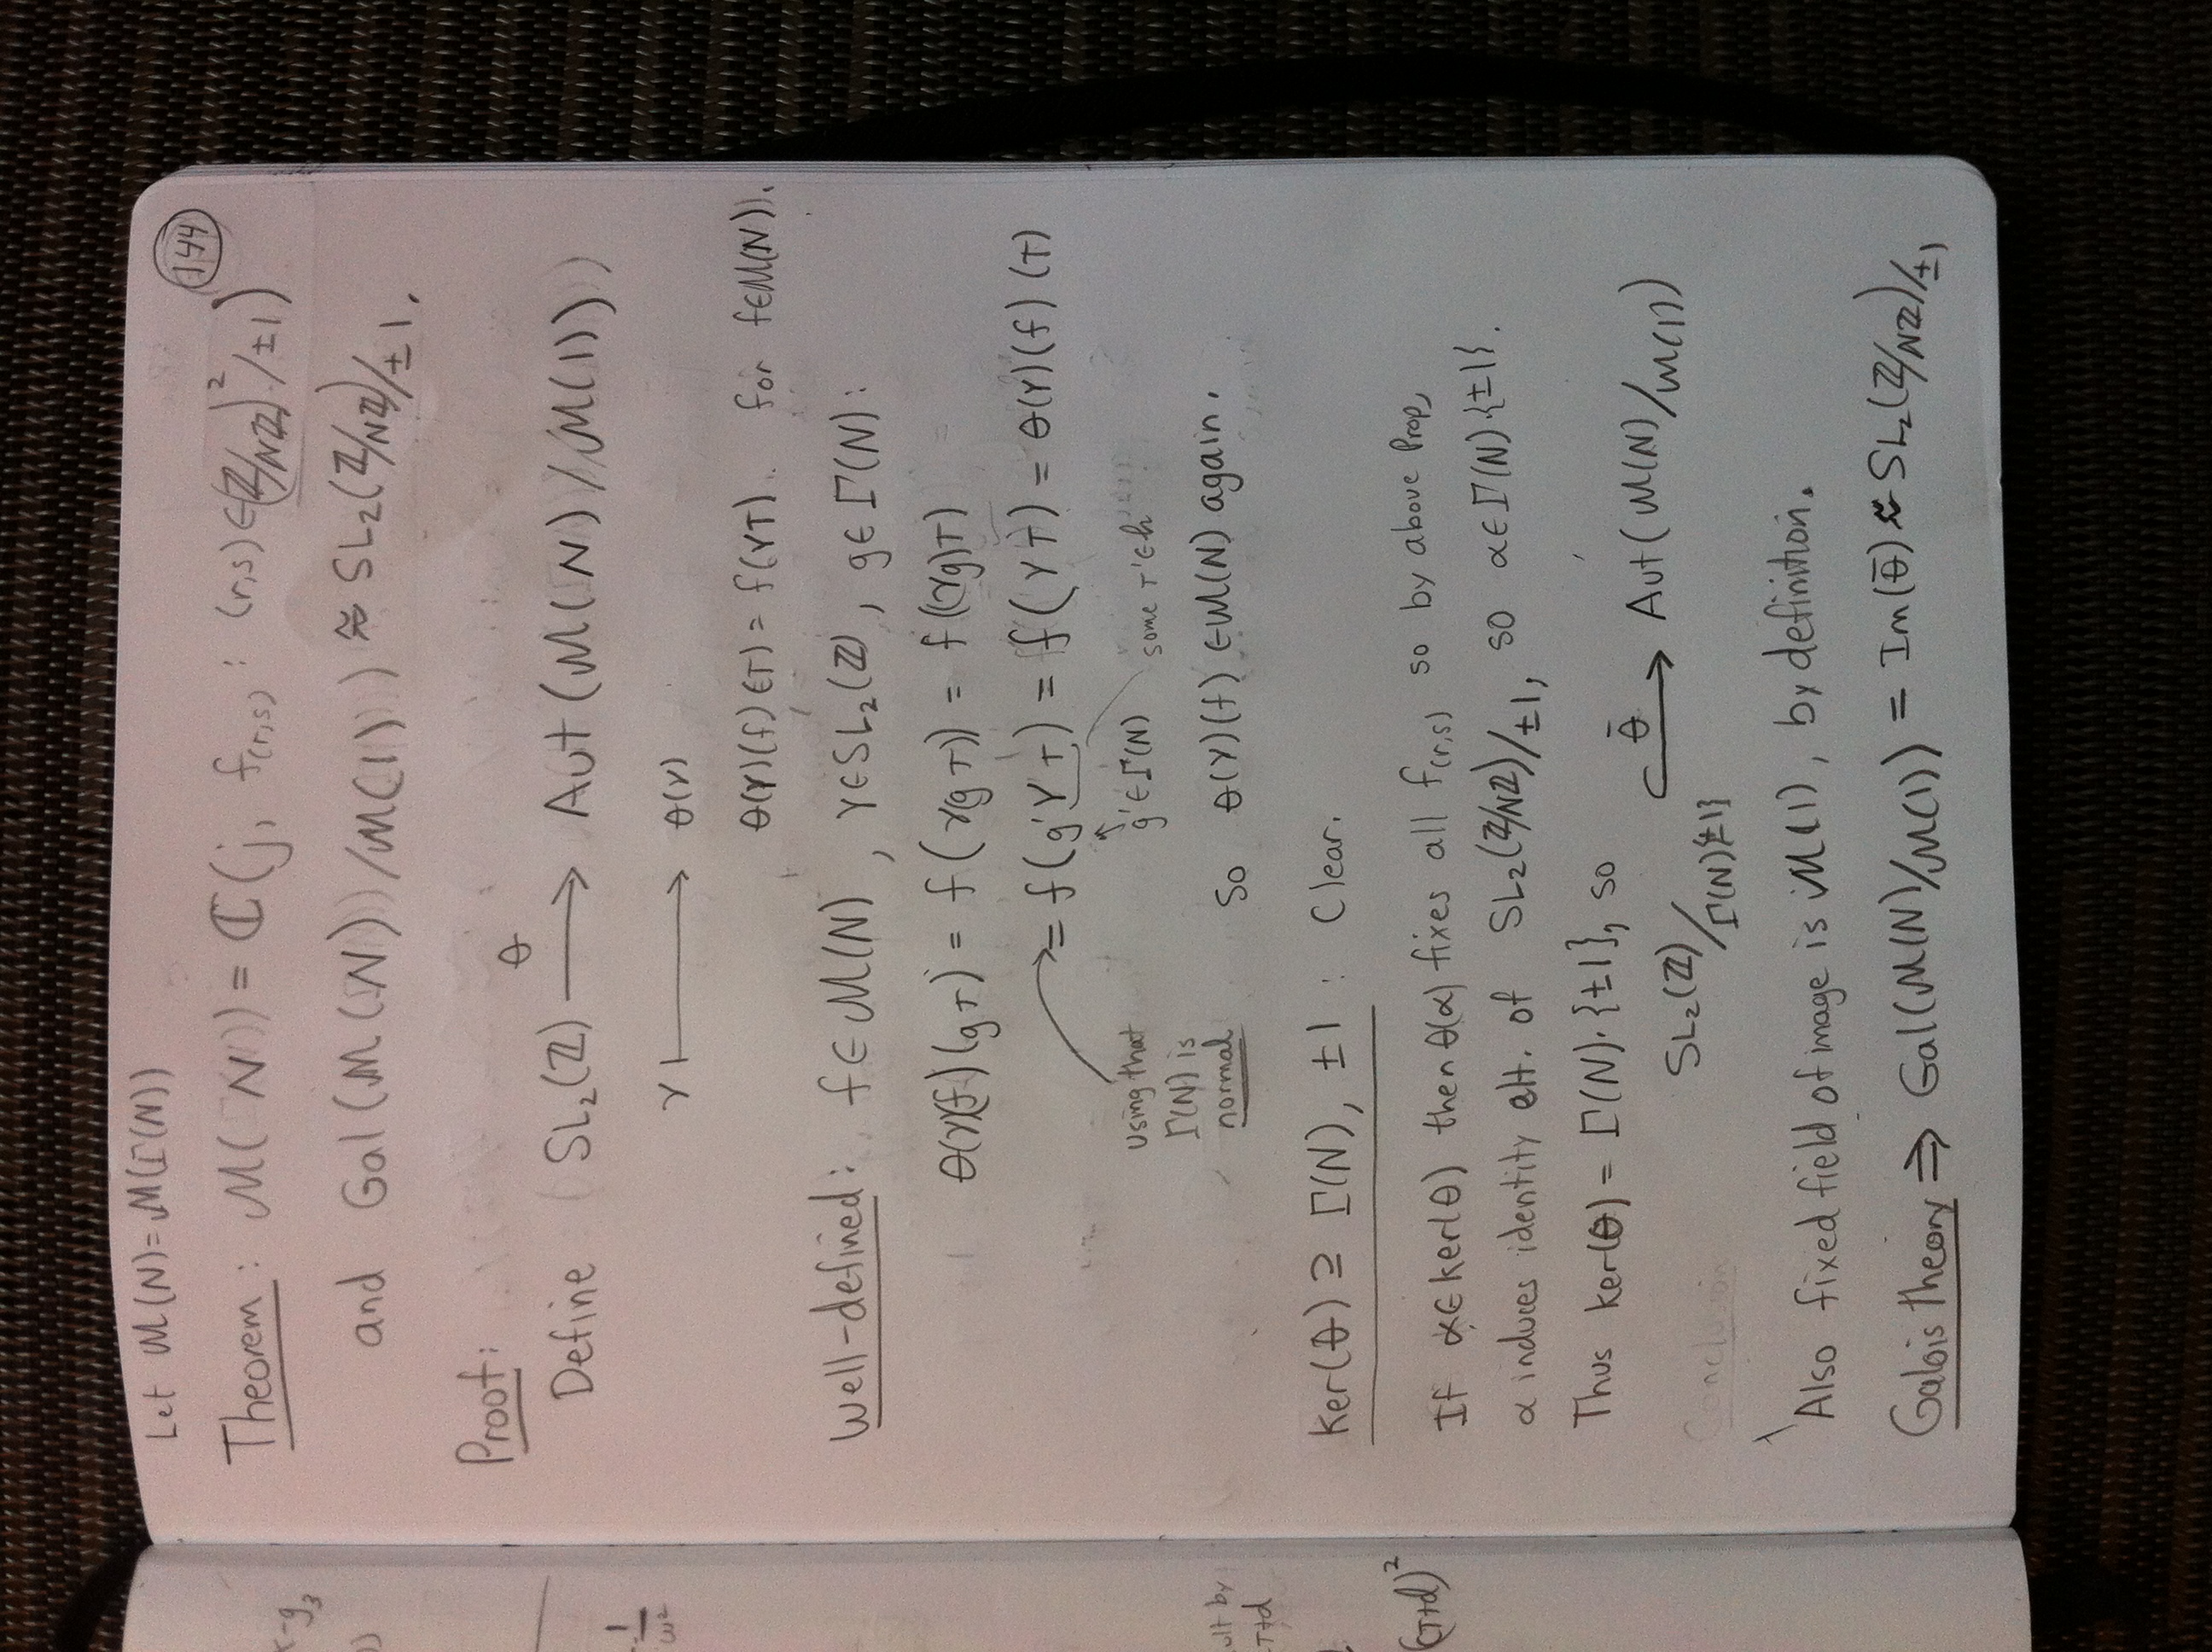 144
Let M(N)=M(Γ(N))
Theorem: M(N) = ℂ(j, f(r,s) : (r,s)∈(ℤ/Nℤ)²/±1)
and Gal(M(N)/M(1)) ≈ SL₂(ℤ/Nℤ)/±1.
Proof:
Define SL₂(ℤ) —θ→ Aut(M(N)/M(1))
γ ↦ θ(γ)
θ(γ)(f)(τ) = f(γτ). for f∈M(N).
Well-defined: f∈M(N), γ∈SL₂(ℤ), g∈Γ(N):
θ(γ)(f)(gτ) = f(γ(gτ)) = f((γg)τ)
= f(g'γτ) = f(γτ) = θ(γ)(f)(τ)
g'∈Γ(N) some τ'∈h
using that
Γ(N) is
normal
so θ(γ)(f)∈M(N) again.
Ker(θ) ⊇ Γ(N), ±1: Clear.
If α∈ker(θ) then θ(α) fixes all f(r,s) so by above Prop,
α induces identity elt. of SL₂(ℤ/Nℤ)/±1, so α∈Γ(N)·{±1}.
Thus ker(θ) = Γ(N)·{±1}, so
SL₂(ℤ)/Γ(N){±1} ↪θ̄ Aut(M(N)/M(1))
Conclusion
Also fixed field of image is M(1), by definition.
Galois theory ⇒ Gal(M(N)/M(1)) = Im(θ̄) ≈ SL₂(ℤ/Nℤ)/±1
-g₃
1/ω²
ult by
cτ+d
(cτ+d)²